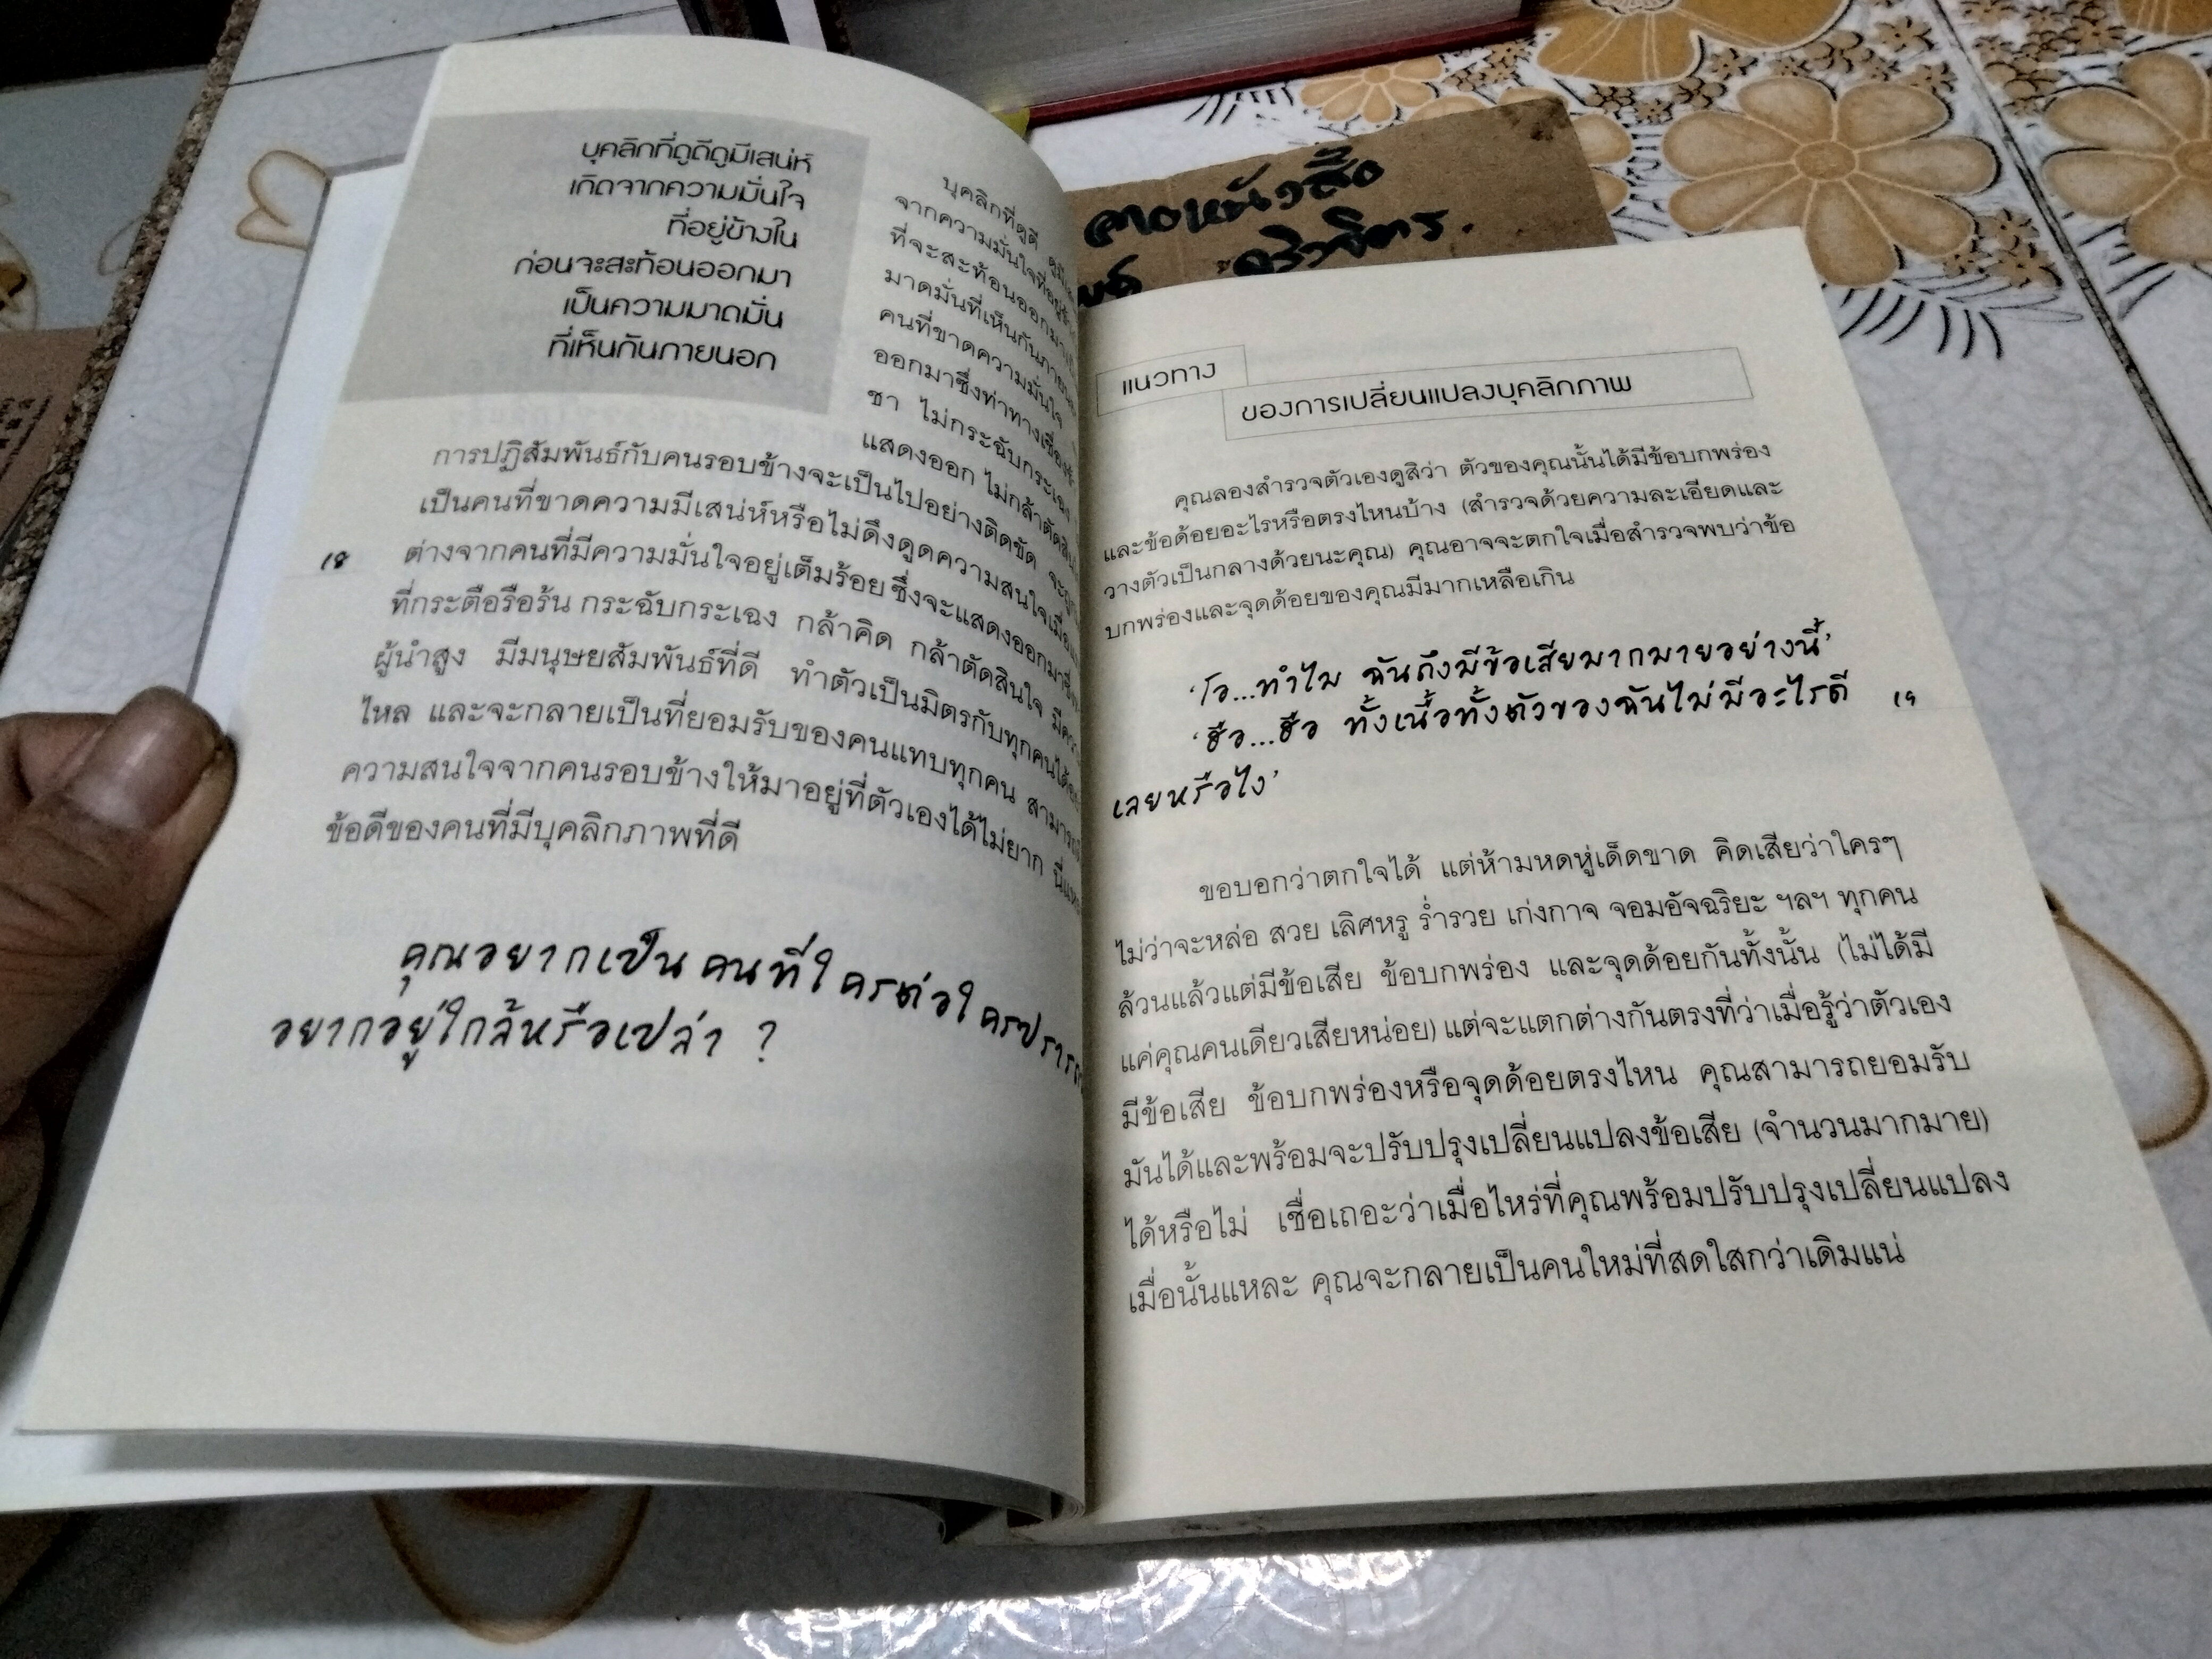 บุคลิกที่ดูดีดูมีเสน่ห์
เกิดจากความมั่นใจ
ที่อยู่ข้างใน
ก่อนจะสะท้อนออกมา
เป็นความมาดมั่น
ที่เห็นกันภายนอก
บุคลิกที่ดูดี
จากความมั่นใจที่อยู่
ที่จะสะท้อนออกมา
มาดมั่นที่เห็นกันภายนอก
คนที่ขาดความมั่นใจ
ออกมาซึ่งท่าทาง
ชา ไม่กระฉับกระเฉง
แสดงออก ไม่กล้าตัดสิน
การปฏิสัมพันธ์กับคนรอบข้างจะเป็นไปอย่างติดขัด
เป็นคนที่ขาดความมีเสน่ห์หรือไม่ดึงดูดความสนใจเมื่อ
ต่างจากคนที่มีความมั่นใจอยู่เต็มร้อย ซึ่งจะแสดงออกมา
ที่กระตือรือร้น กระฉับกระเฉง กล้าคิด กล้าตัดสินใจ
ผู้นำสูง มีมนุษยสัมพันธ์ที่ดี ทำตัวเป็นมิตรกับทุกคนได้
ไหล และจะกลายเป็นที่ยอมรับของคนแทบทุกคน
ความสนใจจากคนรอบข้างให้มาอยู่ที่ตัวเองได้ไม่ยาก
ข้อดีของคนที่มีบุคลิกภาพที่ดี
18
คุณอยากเป็นคนที่ใครต่อใคร
อยากอยู่ใกล้หรือเปล่า ?
แนวทาง
ของการเปลี่ยนแปลงบุคลิกภาพ
คุณลองสำรวจตัวเองดูสิว่า ตัวของคุณนั้นได้มีข้อบกพร่อง
และข้อด้อยอะไรหรือตรงไหนบ้าง (สำรวจด้วยความละเอียดและ
วางตัวเป็นกลางด้วยนะคุณ) คุณอาจจะตกใจเมื่อสำรวจพบว่าข้อ
บกพร่องและจุดด้อยของคุณมีมากเหลือเกิน
‘โอ...ทำไม ฉันถึงมีข้อเสียมากมายอย่างนี้’
‘ฮือ...ฮือ ทั้งเนื้อทั้งตัวของฉันไม่มีอะไรดี
เลยหรือไง’
19
ขอบอกว่าตกใจได้ แต่ห้ามหดหู่เด็ดขาด คิดเสียว่าใครๆ
ไม่ว่าจะหล่อ สวย เลิศหรู ร่ำรวย เก่งกาจ จอมอัจฉริยะ ฯลฯ ทุกคน
ล้วนแล้วแต่มีข้อเสีย ข้อบกพร่อง และจุดด้อยกันทั้งนั้น (ไม่ได้มี
แค่คุณคนเดียวเสียหน่อย) แต่จะแตกต่างกันตรงที่ว่าเมื่อรู้ว่าตัวเอง
มีข้อเสีย ข้อบกพร่องหรือจุดด้อยตรงไหน คุณสามารถยอมรับ
มันได้และพร้อมจะปรับปรุงเปลี่ยนแปลงข้อเสีย (จำนวนมากมาย)
ได้หรือไม่ เชื่อเถอะว่าเมื่อไหร่ที่คุณพร้อมปรับปรุงเปลี่ยนแปลง
เมื่อนั้นแหละ คุณจะกลายเป็นคนใหม่ที่สดใสกว่าเดิมแน่